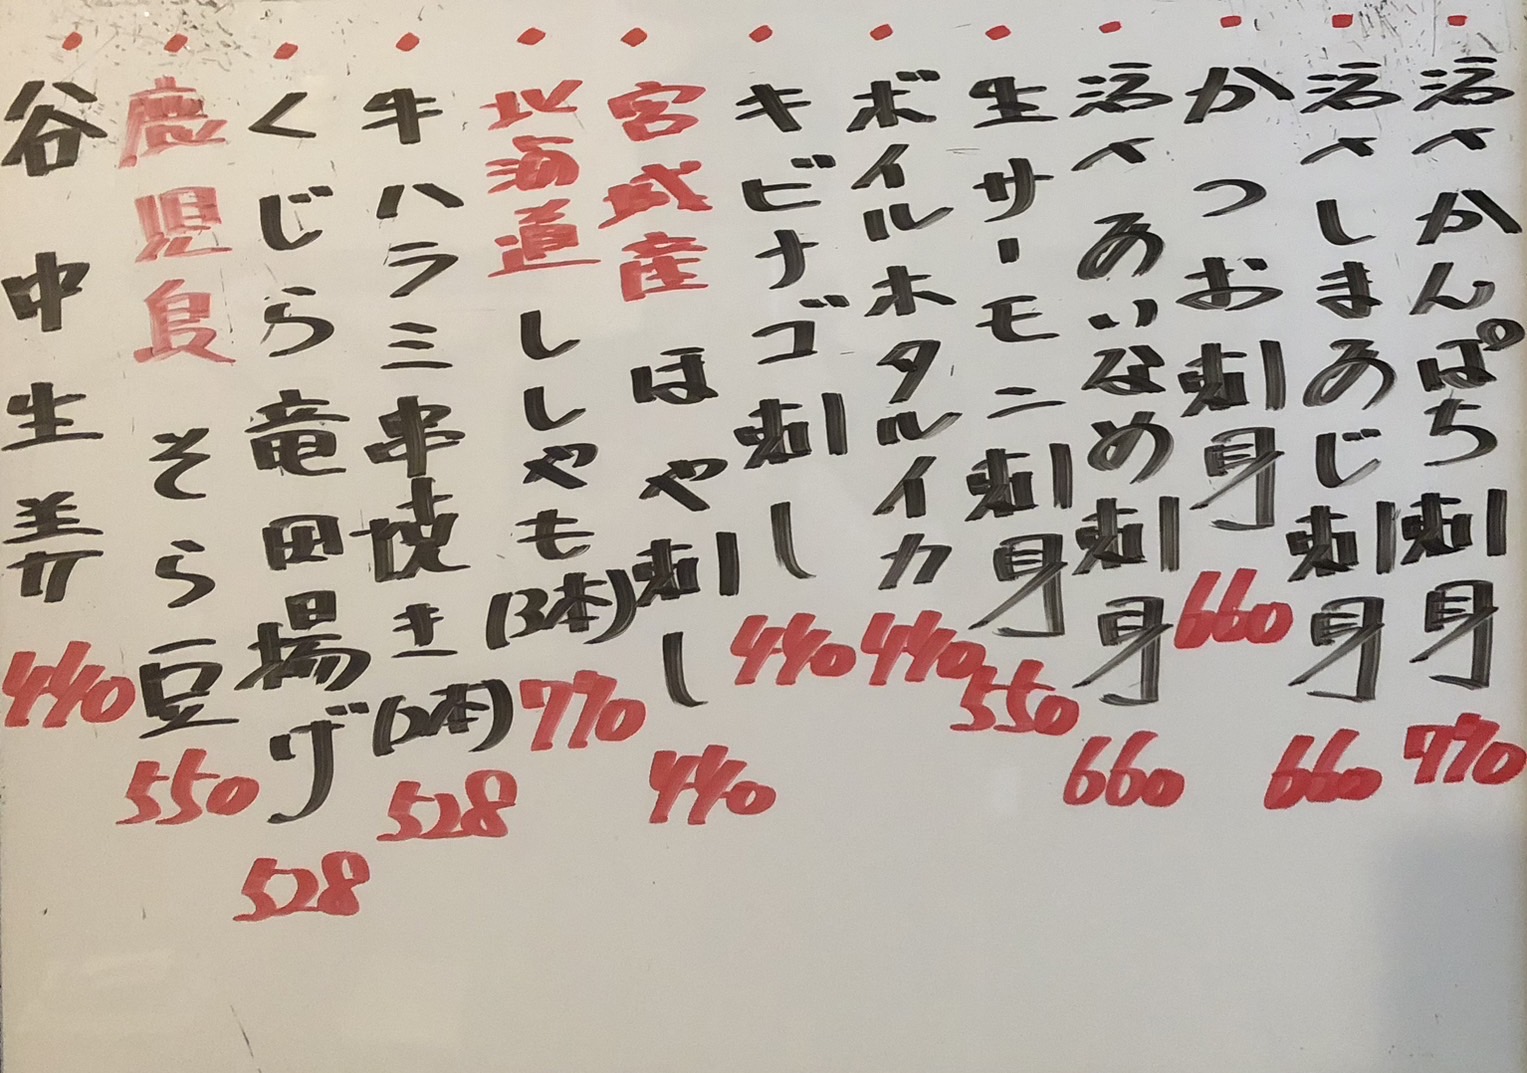 ・活〆かんぱち刺身 770
・活〆しまあじ刺身 660
・かつお刺身 660
・活〆あいなめ刺身 660
・生サーモン刺身 550
・ボイルホタルイカ 440
・キビナゴ刺し 440
・宮城産ほや刺し 440
・北海道ししゃも(3本) 770
・牛ハラミ串焼き(2本) 528
・くじら竜田揚げ 528
・鹿児島そら豆 550
・谷中生姜 440